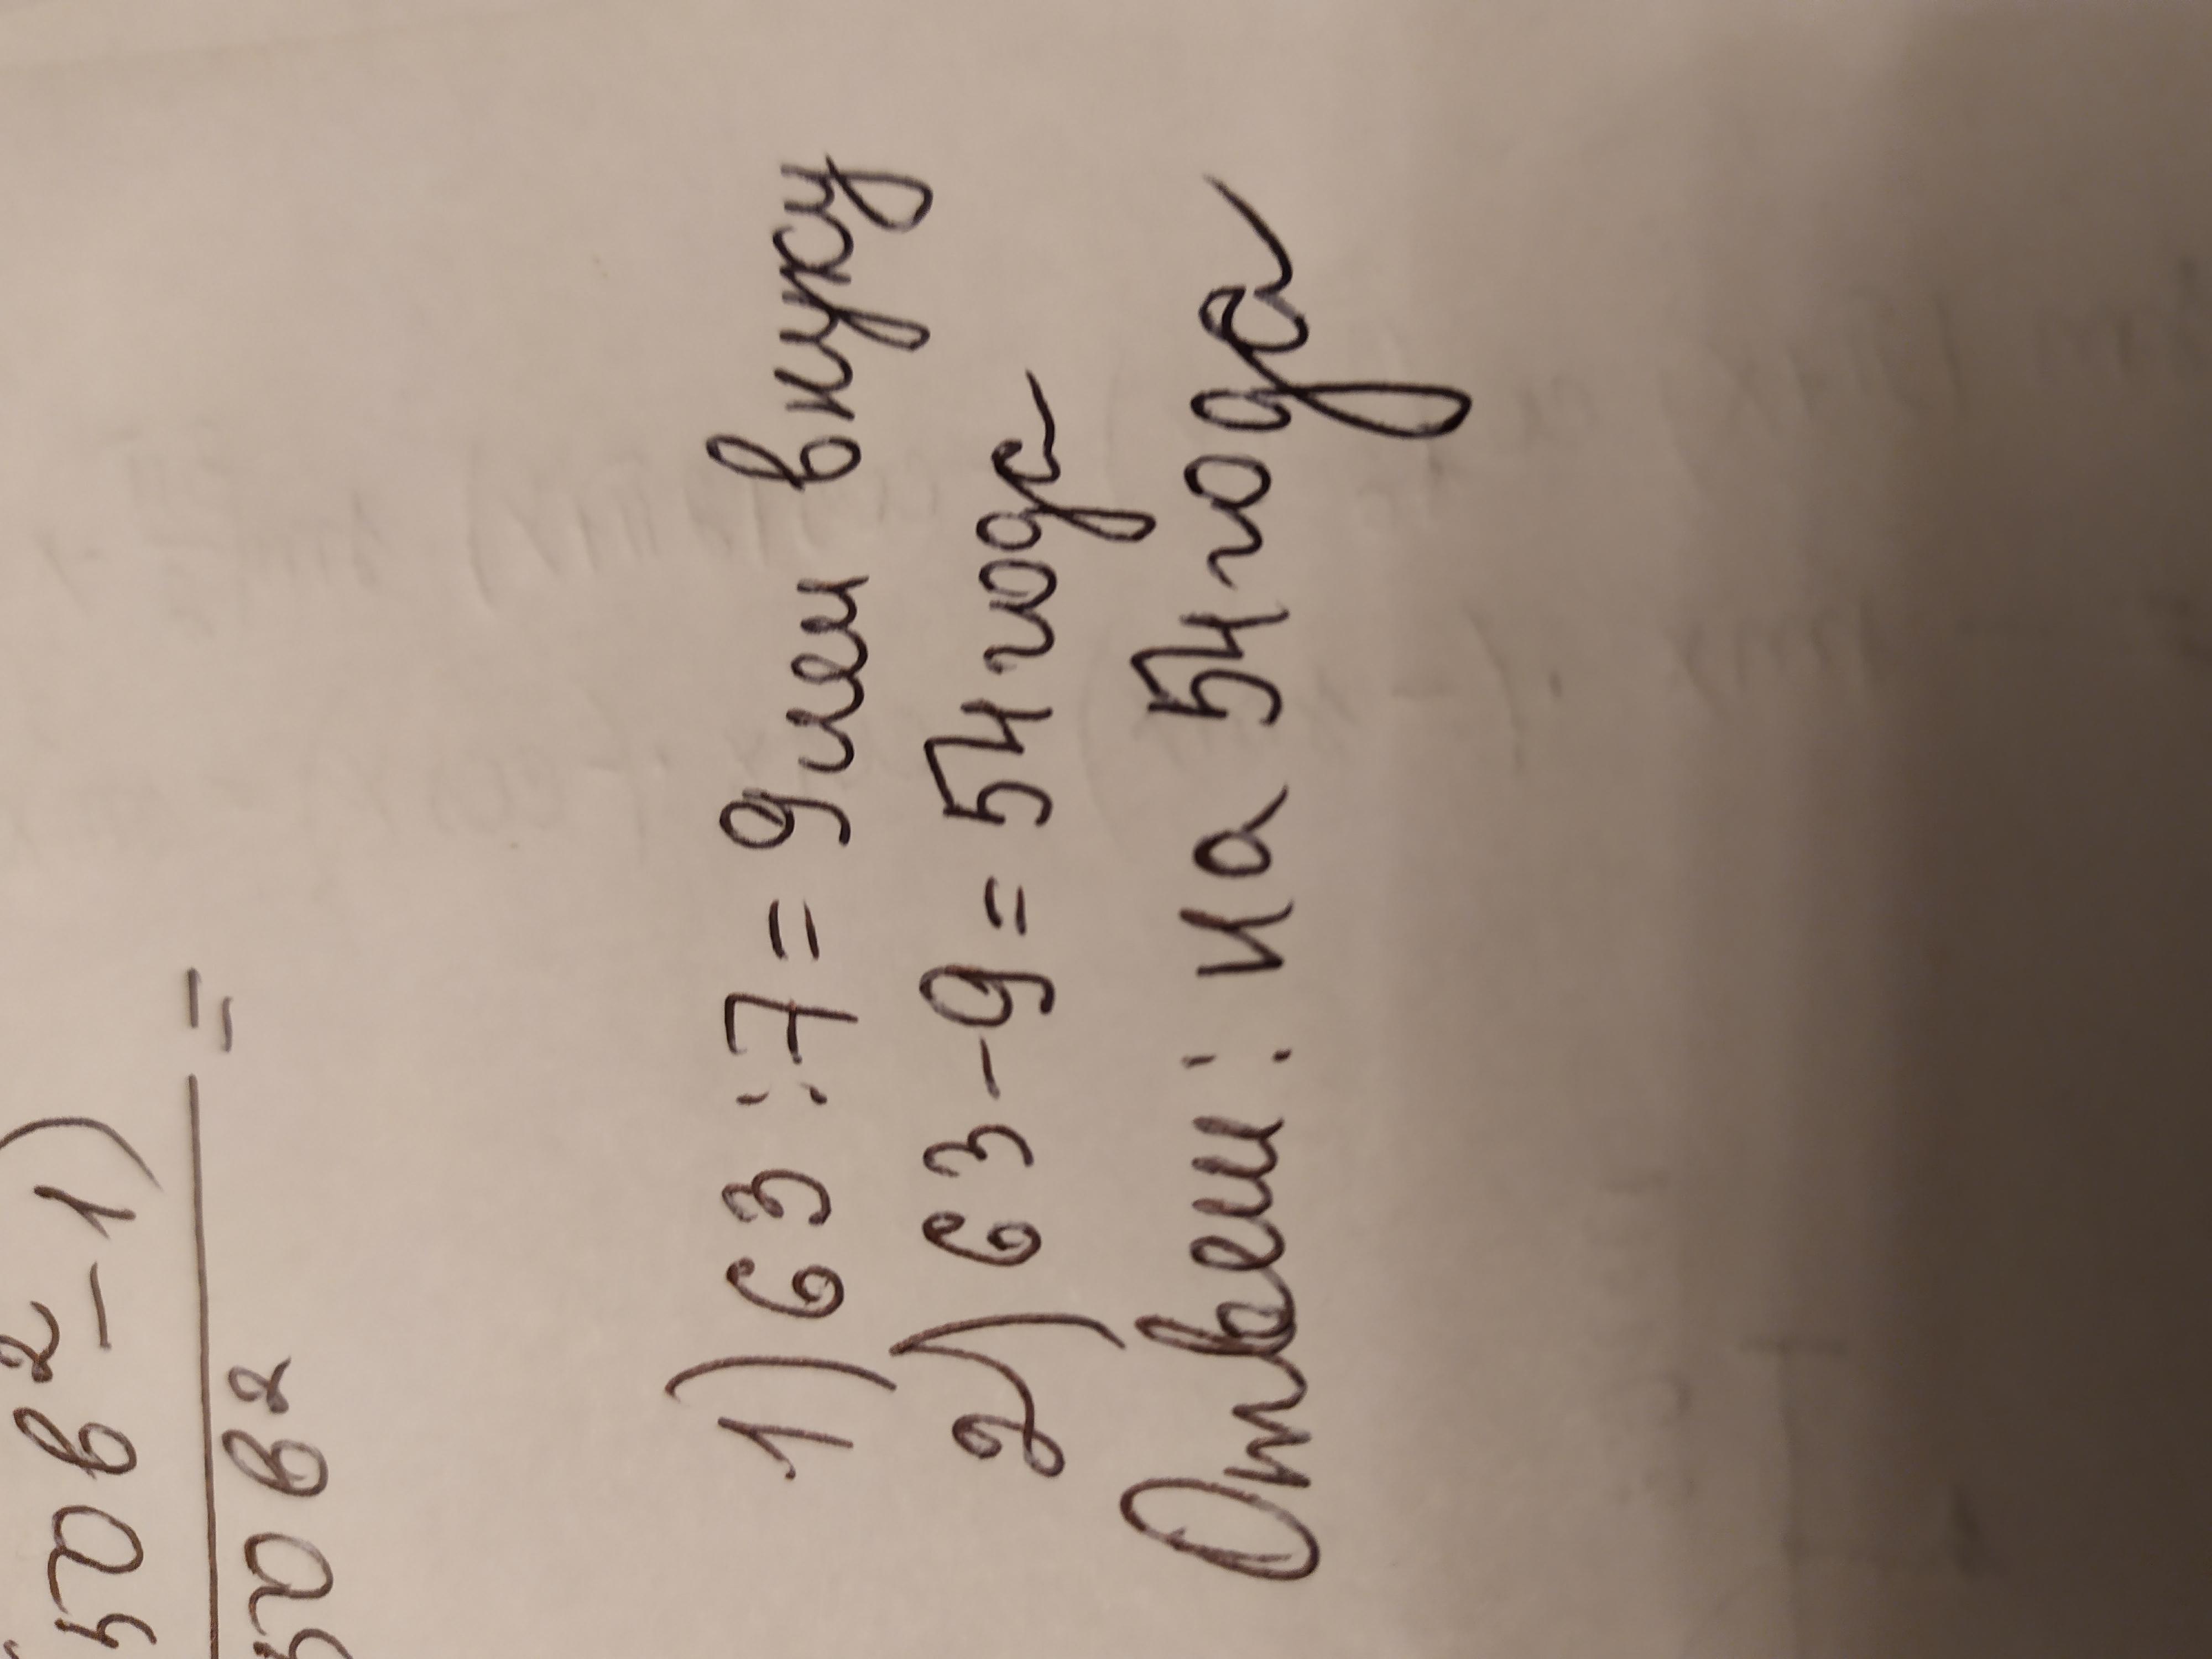 50в²-1)
=
50в²
1) 63:7=9 лет внуку
2) 63-9=54 года
Ответ: на 54 года